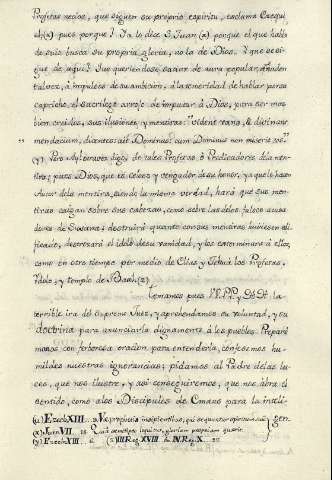 Profetas necios, que siguen su proprio espiritu, exclama Ezequi
el: (u) pues porque? Ya lo dice S. Juan (x) porque el que habla
de suio busca su propria gloria, no la de Dios. Y que se si-
gue de aqui? Que queriendose saciar de aura popular, añaden
tales, à impulsos de su ambicion, à la temeridad de hablar por su
capricho, el sacrilego arrojo de imputar à Dios, para ser mas
bien creidos, sus ilusiones, y mentiras: "vident vana, & divinant
" mendacium, dicentes ait Dominus, cum Dominus non miserit eos"
(y). Pero Ay! otra vez digo de tales Profetas ò Predicadores de men
tira; pues Dios, que es celoso y vengador de su honor, ya que le hacen
Autor de la mentira, siendo la misma verdad, hará que sus men
tiras caigan sobre sus cabezas, como sobre las de los falsos acusa
dores de Susana; destruirá quanto con sus mentiras huviesen edi
ficado, destrozará el idolo de su vanidad, y los exterminará à ellos,
como en otro tiempo por medio de Elias y Jehu à los Profetas,
Idolo, y templo de Baal. (z)
Temamos pues VV. PP. y la
terrible ira del supremo Juez, y aprendamos su voluntad, y su
doctrina para anunciarla dignamente à los pueblos. Prepare
monos con fervorosa oracion para entenderla, confesemos hu-
mildes nuestras ignorancias; pidamos al Padre de las lu-
ces, que nos ilustre, y asi conseguiremos, que nos abra el
sentido, como a los Discipulos de Emaus para la inteli-
gen-
(u) Ezech XIII. Væ prophetis insipientibus, qui sequuntur spiritum suum
(x) Joan VII. Qui a semetipso loquitur, gloriam propriam quærit.
(y) Ezech XIII. 6. (z) III Reg. XVIII & IV. Reg. X.